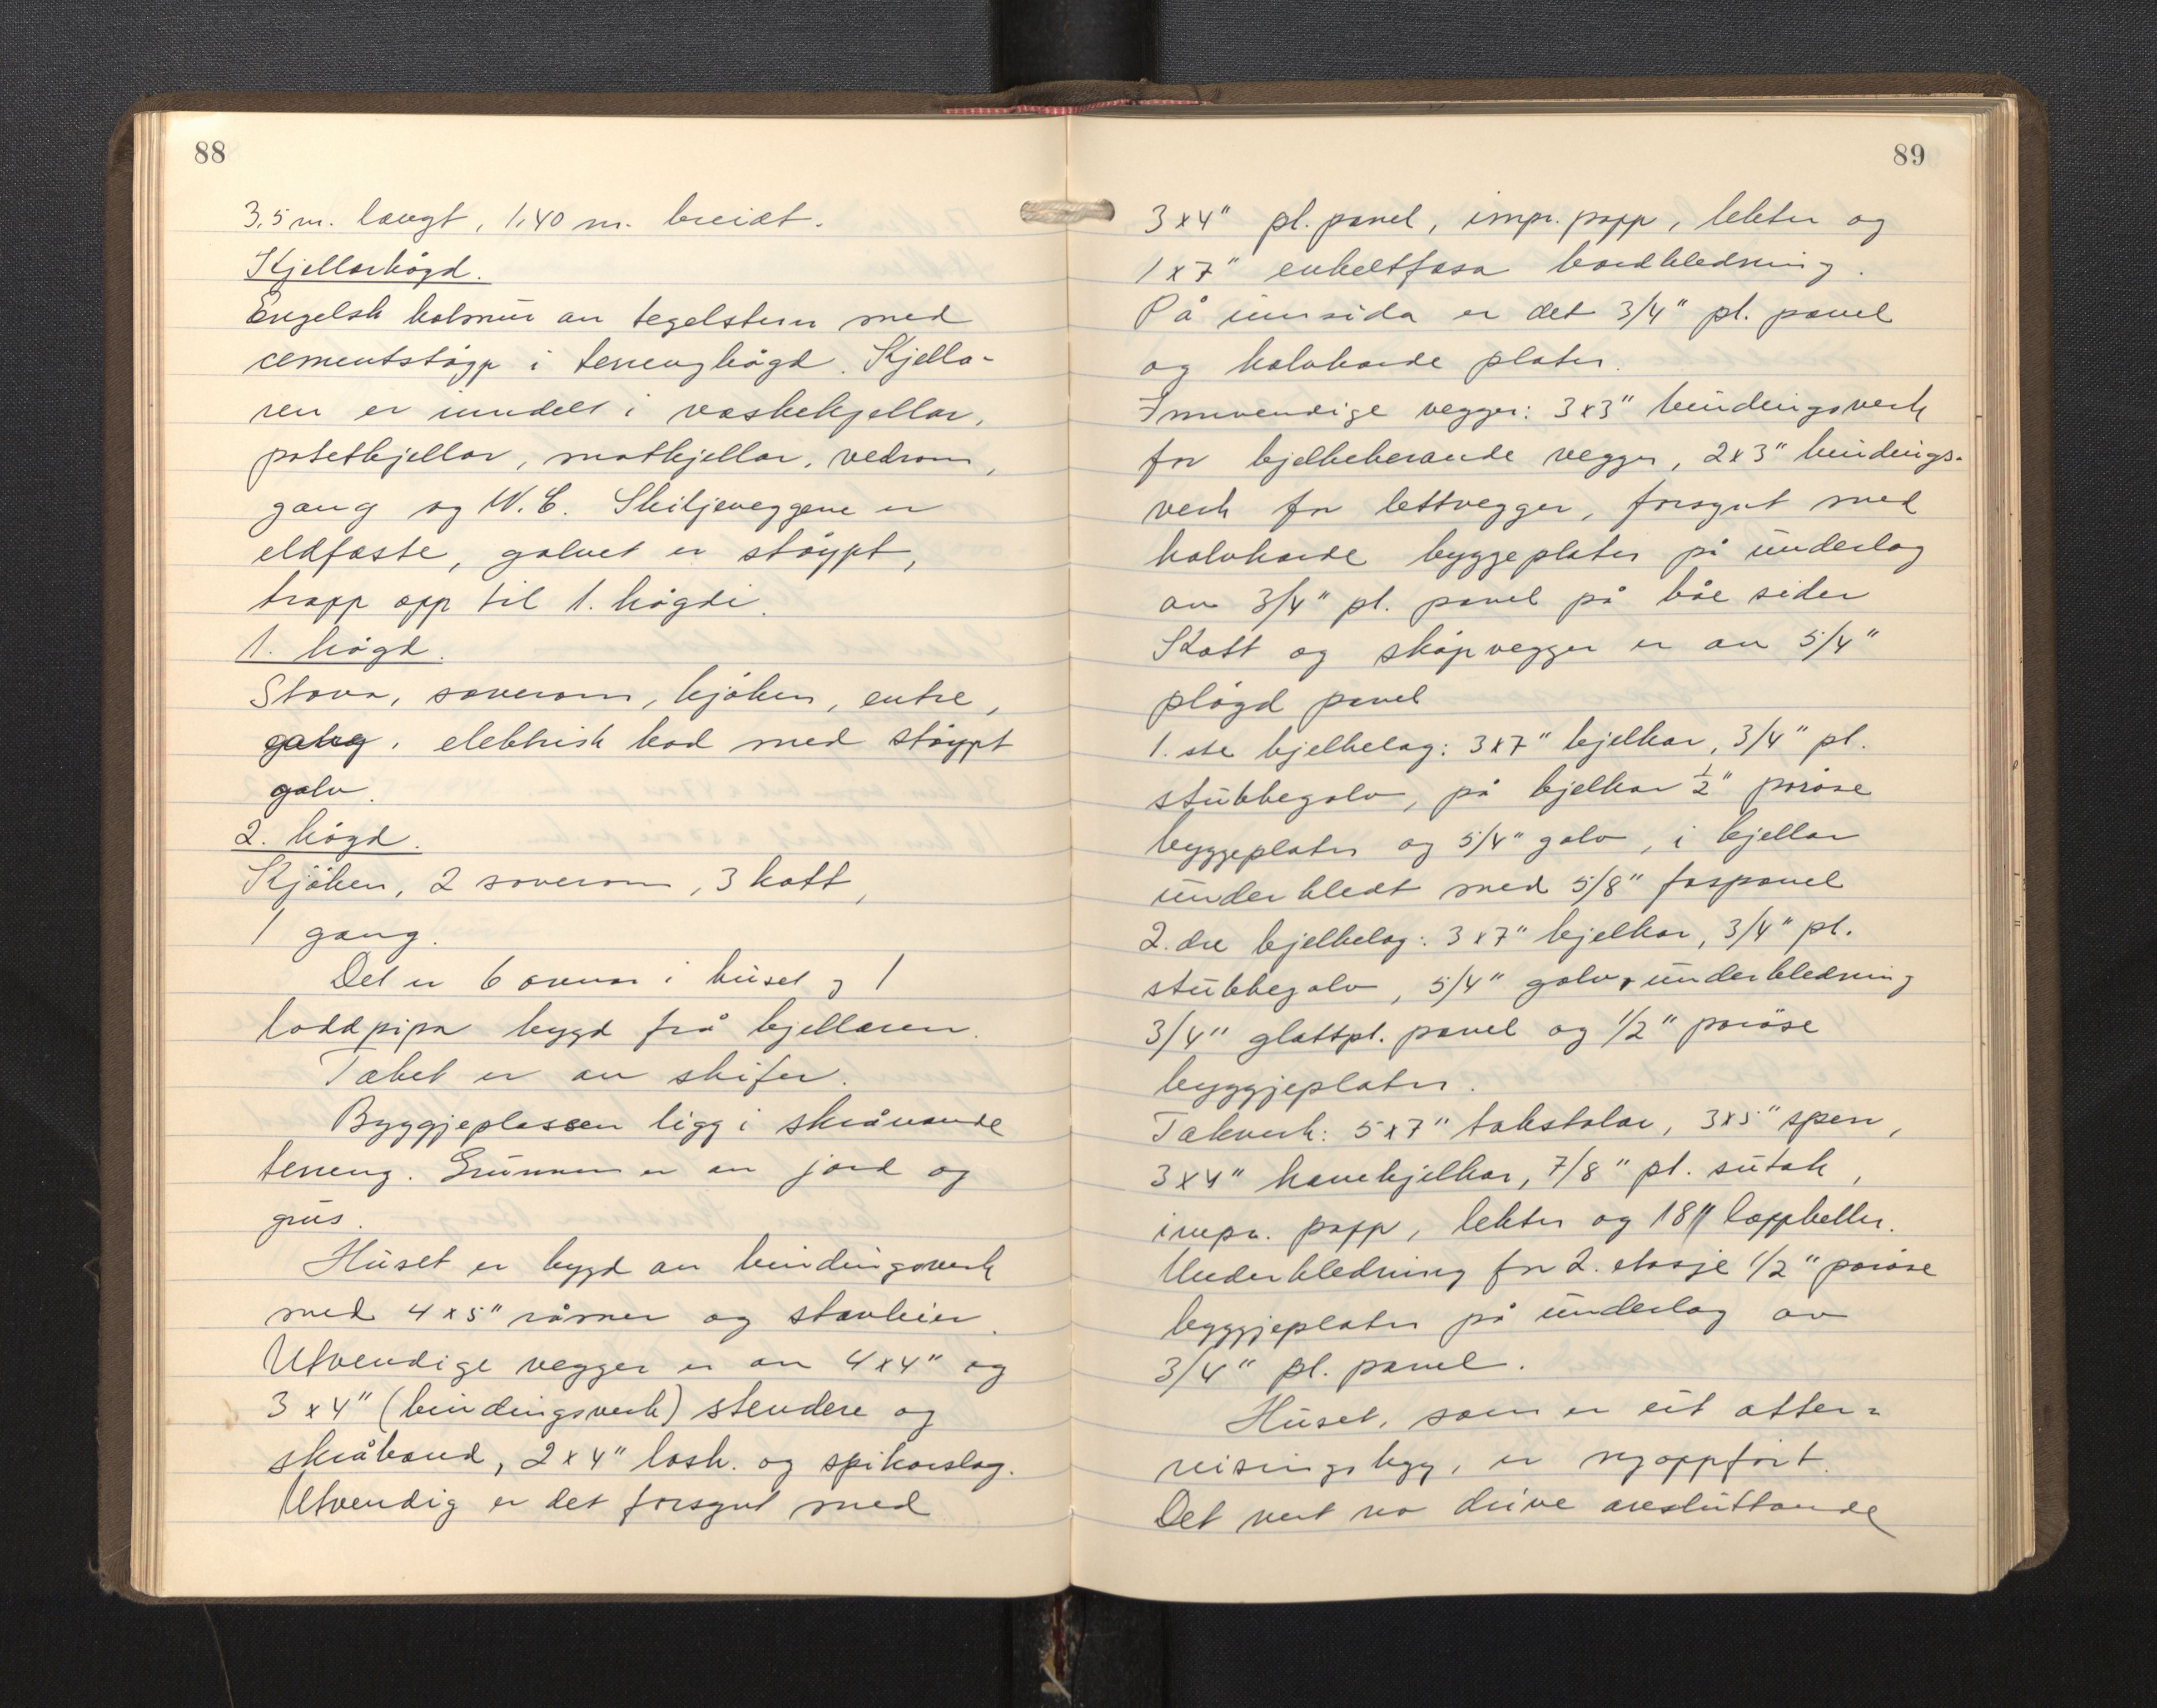 88
3,5 m. langt, 1,40 m. breidt.
Kjellarhögd.
Engelsk holmur av tegelstein med
cementstöpp i terrenghögd. Kjella-
ren er inndelt i vaskekjellar,
potetkjellar, matkjellar, vedrom,
gang og W.C. Skiljeveggene er
eldfaste, golvet er stöypt,
trapp opp til 1. högdi.
1. högd.
Stova, soverom, kjöken, entre,
gang, elektrisk bad med stöypt
golv.
2. högd.
Kjöken, 2 soverom, 3 kott,
1 gang.
Det er 6 omnar i huset og 1
loddpipa bygd frå kjellaren.
Taket er av skifer.
Byggjeplassen ligg i skrånande
terreng. Grunnen er av jord og
grus.
Huset er bygd av bindingsverk
med 4x5" råmer og stavleier.
Utvendige vegger er av 4x4" og
3x4" (bindingsverk) stendere og
skråband, 2x4" losh. og spikarslag.
Utvendig er det forsynt med
89
3x4" pl. panel, impr. papp, lekter og
1x7" enkeltfasa bordkledning.
På innsida er det 3/4" pl. panel
og halvharde plater.
Innvendige vegger: 3x3" bindingsverk
for bjelkeberande vegger, 2x3" bindings-
verk for lettvegger, forsynt med
halvharde byggeplater på underlag
av 3/4" pl. panel på båe sider
Kott og skåpvegger er av 5/4"
plögd panel
1. ste bjelkelag: 3x7" bjelkar, 3/4" pl.
stubbegolv, på bjelkar 1/2" poröse
byggjeplater og 5/4" golv, i kjellar
underkledt med 5/8" faspanel
2. dre bjelkelag: 3x7" bjelkar, 3/4" pl.
stubbegolv, 5/4" golv, underkledning
3/4" glattpl. panel og 1/2" poröse
byggjeplater.
Takverk: 5x7" takstolar, 3x5" sperr,
3x4" hanebjelkar, 7/8" pl. sutak,
impr. papp, lekter og 18" lappheller.
Underkledning for 2. etasje 1/2" poröse
byggjeplater på underlag av
3/4" pl. panel.
Huset, som er eit atter=
reisingsbygg, er nyoppfört.
Det vert no drive avsluttande